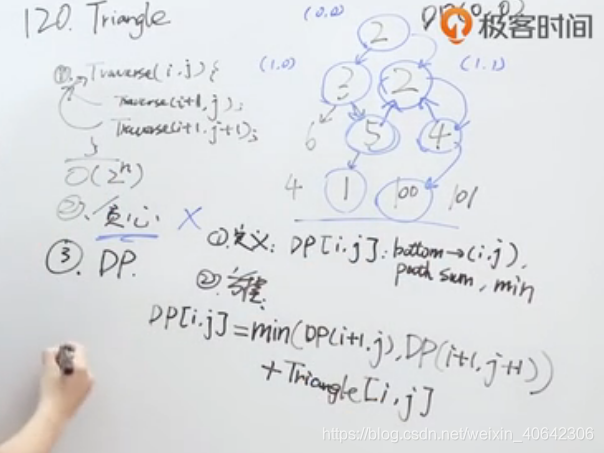 120. Triangle
(0,0)
DP(0,0)
极客时间
2
(1,0)
3
2
(1,1)
6
5
4
4
1
100
101
①. Traverse(i,j){
Traverse(i+1,j);
Traverse(i+1,j+1);
}
O(2ⁿ)
②. 贪心. ×
③. DP.
①定义: DP[i,j]: bottom→(i,j),
path sum, min
②方程:
DP[i,j]=min(DP(i+1,j),DP(i+1,j+1))
+Triangle[i,j]
https://blog.csdn.net/weixin_40642306